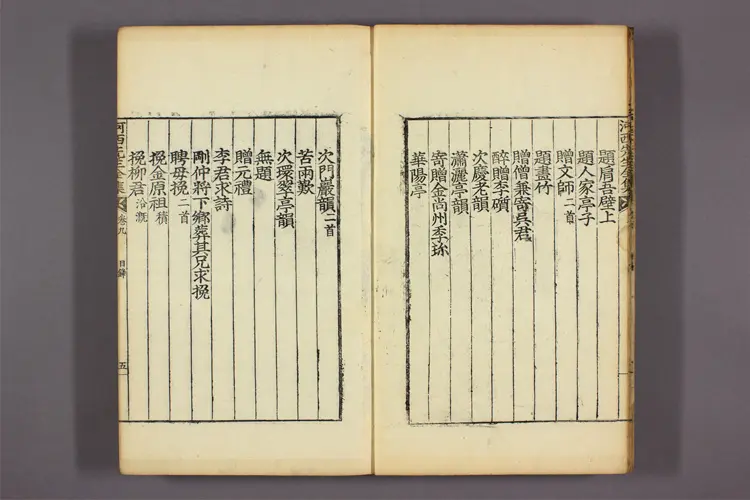 河西先生全集
題肩吾壁上
題人家亭子
贈文師二首
題畫竹
贈僧兼寄吳君
醉贈李碩
次慶老韻
瀟灑亭韻
寄贈金尚州季珍
華陽亭
次門巖韻二首
苦雨歎
次環翠亭韻
無題
贈元禮
李君求詩
剛仲將下鄉葬其兄求挽
聘母挽二首
挽金原祖積
挽柳君洽溉
河西先生全集 卷九 目錄 五